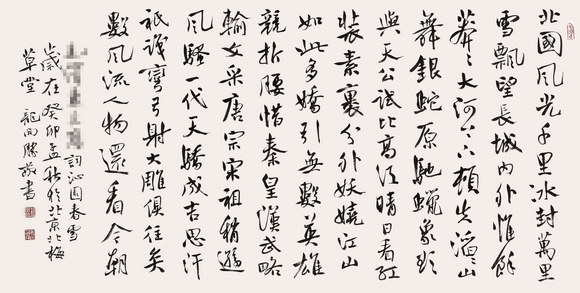 北國風光千里冰封萬里
雪飄望長城內外惟餘
莽々大河上下頓失滔々山
舞銀蛇原馳蠟象欲
與天公試比高須晴日看紅
裝素裹分外妖嬈江山
如此多嬌引無數英雄
競折腰惜秦皇漢武略
輸文采唐宗宋祖稍遜
風騷一代天驕成吉思汗
衹識彎弓射大雕俱往矣
數風流人物還看今朝
詞沁園春雪
歲在癸卯孟秋於北京北梅
草堂 龍書